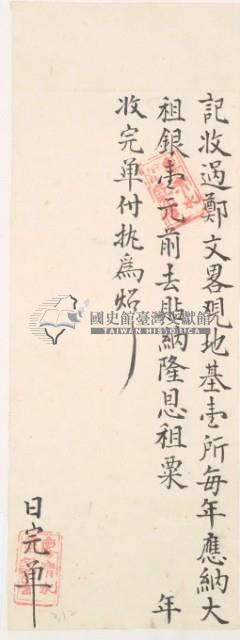 記收過鄭文畧現地基壹所每年應納大
租銀壹元前去貼納隆恩租粟　年
收完单付執為炤
日完单
國史館臺灣文獻館
TAIWAN HISTORICA